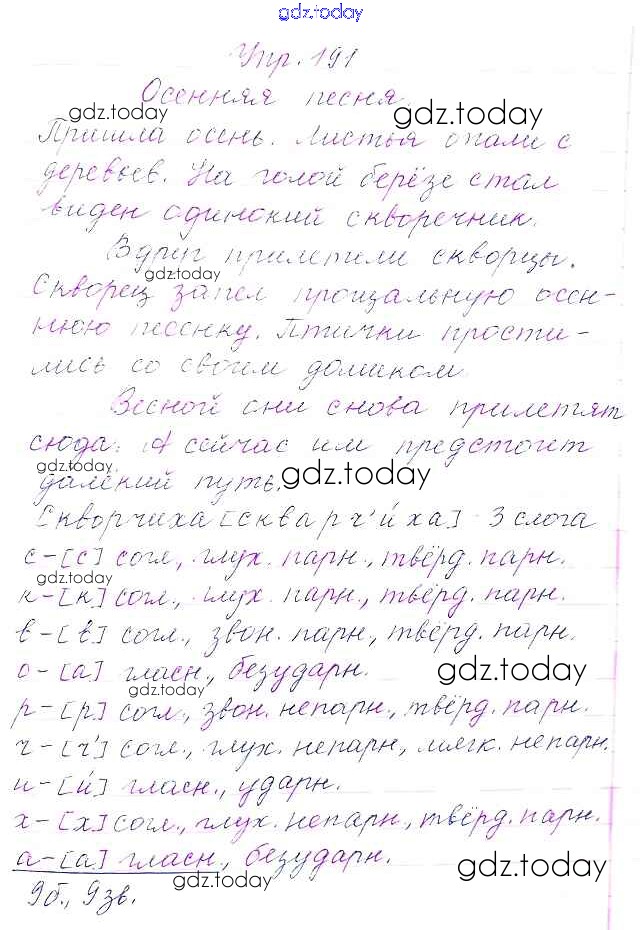 gdz.today
Упр. 191
Осенняя песня.
gdz.today
gdz.today
Пришла осень. Листья опали с
деревьев. На голой берёзе стал
виден одинокий скворечник.
Вдруг прилетели скворцы.
gdz.today
Скворец запел прощальную осен-
нюю песенку. Птички прости-
лись со своим домиком.
Весной они снова прилетят
сюда. А сейчас им предстоит
gdz.today
далёкий путь.
gdz.today
Скворчиха [скварч'и́ха] - 3 слога
с - [с] согл., глух. парн., твёрд. парн.
gdz.today
к - [к] согл., глух. парн., твёрд. парн.
в - [в] согл., звон. парн., твёрд. парн.
о - [а] гласн., безударн.
gdz.today
gdz.today
р - [р] согл., звон. непарн., твёрд. парн.
ч - [ч'] согл., глух. непарн., мягк. непарн.
и - [и́] гласн., ударн.
х - [х] согл., глух. непарн., твёрд. парн.
а - [а] гласн., безударн.
9б., 9зв.
gdz.today
gdz.today